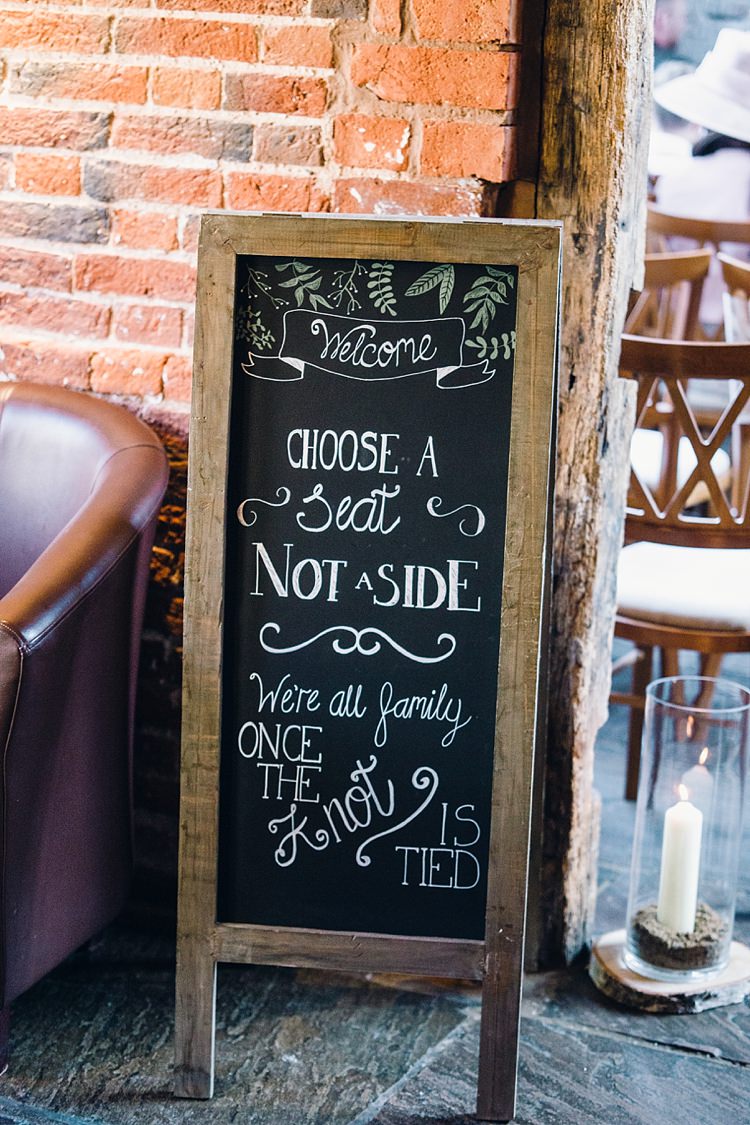 Welcome
CHOOSE A
Seat
NOT A SIDE
We're all family
ONCE
THE
Knot
IS
TIED